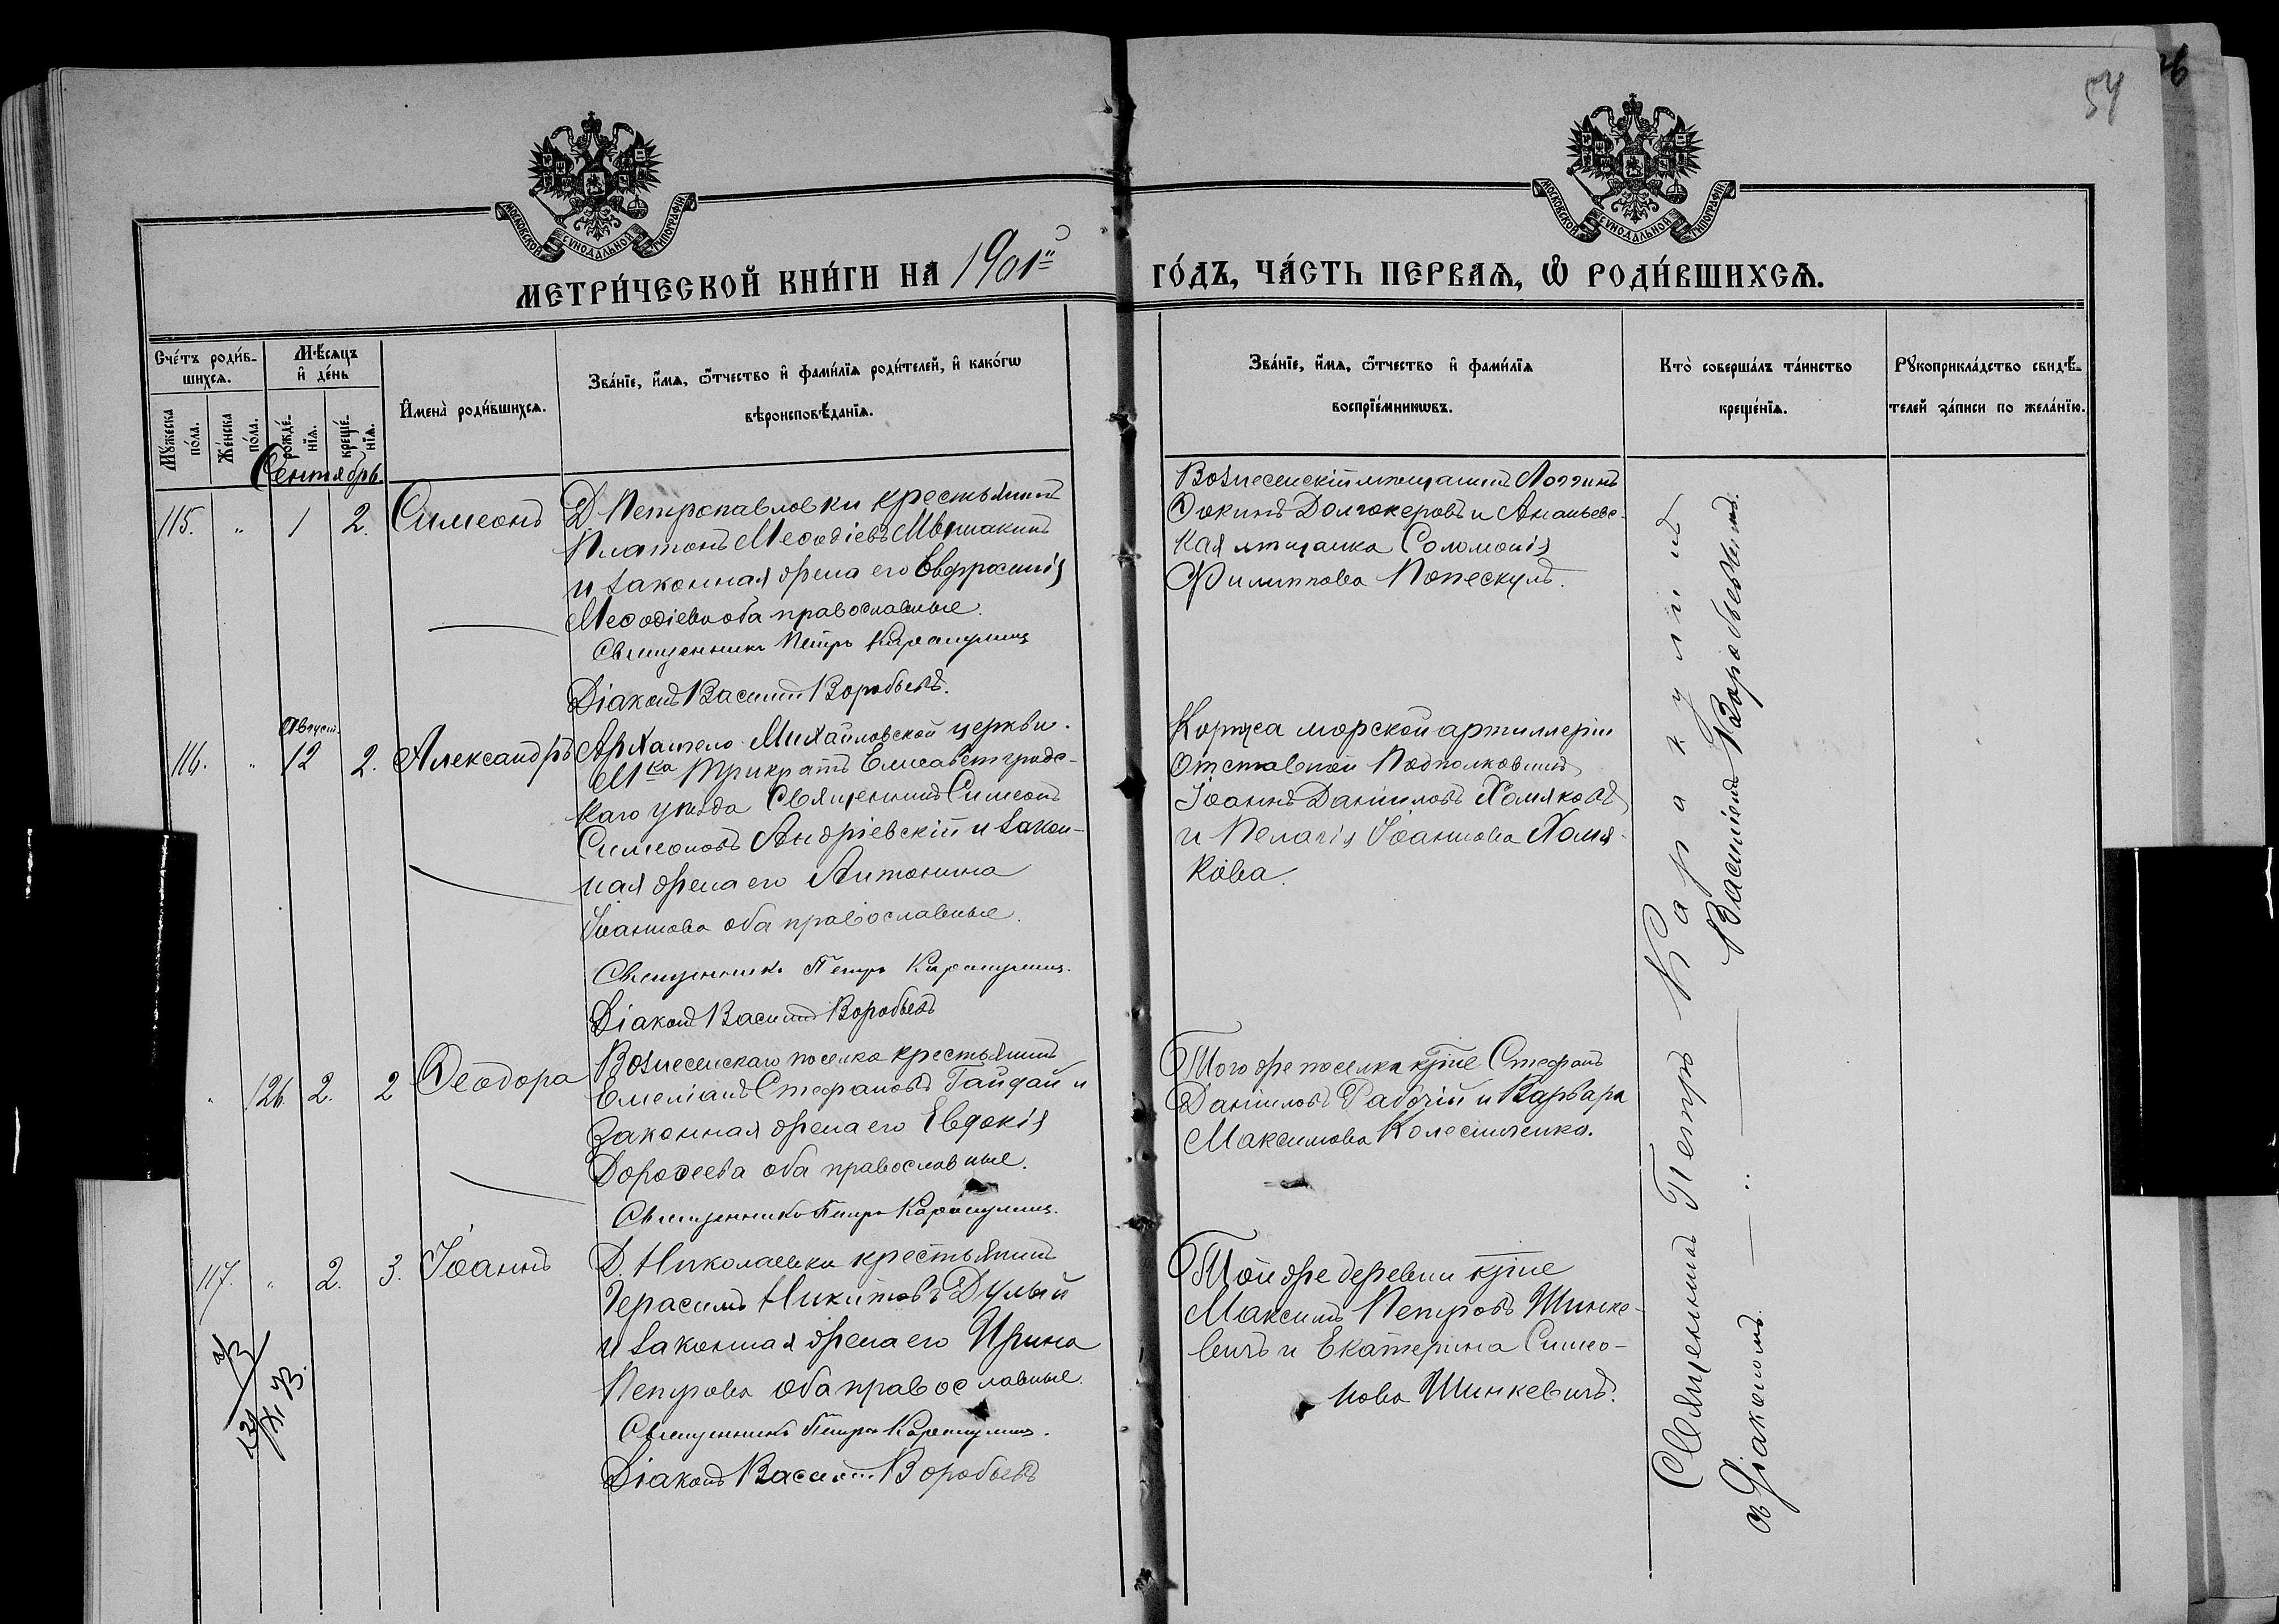 26
54
МОСКОВСКОЙ СѴНОДАЛЬНОЙ ТИПОГРАФІИ
МОСКОВСКОЙ СѴНОДАЛЬНОЙ ТИПОГРАФІИ
МЕТРИ́ЧЕСКОЙ КНИ́ГИ НА 1901й ГО́ДЪ, ЧА́СТЬ ПЕРВАѦ, Ѡ҆ РОДИ́ВШИХСѦ.
Счéтъ роди́в-
шихсѧ.
Мѣ́сяцъ
и҆ де́нь
И҆мена̀ роди́вшихсѧ.
Зва́нїе, и҆́мѧ, ѻ҆́тчество и҆ фами́лїѧ роди́телей, и҆ како́гѡ
вѣроисповѣ́данїѧ.
Мꙋ́жеска по́ла.
Же́нска по́ла.
рожде́-нїѧ.
креще́-нїѧ.
Зва́нїе, и҆́мѧ, ѻ҆́тчество и҆ фами́лїѧ
воспрїе́мникѡвъ.
Кто̀ соверша́лъ та́инство
креще́нїѧ.
Рꙋкоприкла́дство свидѣ́-
телей за́писи по жела́нїю.
Сентябрь
115. " 1 2. Симеонъ
Д. Петропавловки крестьянинъ
Платонъ Меѳодіевъ
и законная жена его Евфросинія
Меѳодіева оба православные.
Священникъ Петръ Каракулинъ
Діаконъ Василій Воробьевъ.
Вознесенскій мѣщанинъ Логгинъ
Ѳокинъ Долгокеровъ и Ананьевс-
кая мѣщанка Соломонія
Филиппова Попескулъ.
Август.
116. " 12 2. Александръ
Архангело-Михайловской церкви
М-ка Трикратъ Елисаветградс-
каго уѣзда Священникъ Симеонъ
Симеоновъ Андріевскій и закон-
ная жена его Антонина
Іоаннова оба православные.
Священникъ Петръ Каракулинъ.
Діаконъ Василій Воробьевъ
Корпуса морской артиллеріи
Отставной Подполковникъ
Іоаннъ Даниловъ Хомяковъ
и Пелагія Іоаннова Хомя-
кова.
" 126 2. 2 Ѳеодора
Вознесенскаго поселка крестьянинъ
Емеліанъ Стефановъ Гайдай и
Законная жена его Евдокія
Дороѳеева оба православные.
Священникъ Петръ Каракулинъ.
Того же поселка кр-не Стефанъ
Даниловъ Рабочій и Варвара
Максимова Колесниченко.
117. " 2. 3. Іоаннъ
Д. Николаевки крестьянинъ
Герасимъ Никитовъ Дулый
и законная жена его Ирина
Петрова оба православные.
Священникъ Петръ Каракулинъ.
Діаконъ Василій Воробьевъ
Той же деревни кр-не
Максимъ Петровъ Шинке-
вичъ и Екатерина Симео-
нова Шинкевичъ.
Священникъ Петръ Каракулинъ
съ Діакономъ Василіемъ Воробьевымъ.